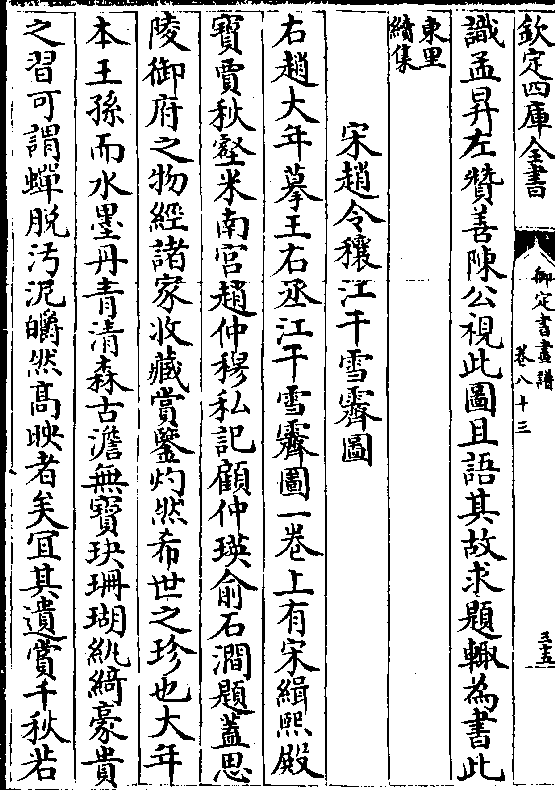 欽定四庫全書
御定書畫譜
卷八十三
三十五
識孟昇左贊善陳公視此圖且語其故求題輙為書此
東里
續集
宋趙令穰江干雪霽圖
右趙大年摹王右丞江干雪霽圖一卷上有宋緝熙殿
寳賈秋壑米南宮趙仲穆私記顧仲瑛俞石澗題蓋思
陵御府之物經諸家收藏賞鑒灼然希世之珍也大年
本王孫而水墨丹青清森古澹無寳玦珊瑚紈綺豪貴
之習可謂蟬脱汚泥皭然髙映者矣宜其遺賞千秋若